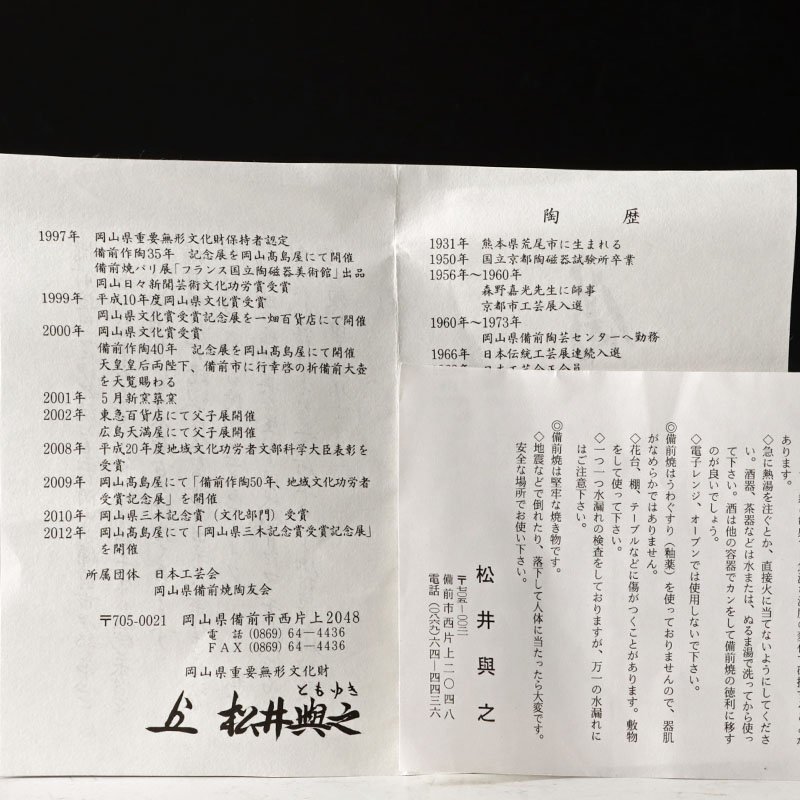 陶歴
1931年 熊本県荒尾市に生まれる
1950年 国立京都陶磁器試験所卒業
1956年～1960年
森野嘉光先生に師事
京都市工芸展入選
1960年～1973年
岡山県備前陶芸センターへ勤務
1966年 日本伝統工芸展連続入選
1997年 岡山県重要無形文化財保持者認定
備前作陶35年 記念展を岡山高島屋にて開催
備前焼パリ展「フランス国立陶磁器美術館」出品
岡山日々新聞芸術文化功労賞受賞
1999年 平成10年度岡山県文化賞受賞
岡山県文化賞受賞記念展を一畑百貨店にて開催
2000年 岡山県文化賞受賞
備前作陶40年 記念展を岡山高島屋にて開催
天皇皇后両陛下、備前市に行幸啓の折備前大壺
を天覧賜わる
2001年 5月新窯築窯
2002年 東急百貨店にて父子展開催
広島天満屋にて父子展開催
2008年 平成20年度地域文化功労者文部科学大臣表彰を
受賞
2009年 岡山高島屋にて「備前作陶50年、地域文化功労者
受賞記念展」を開催
2010年 岡山県三木記念賞（文化部門）受賞
2012年 岡山高島屋にて「岡山県三木記念賞受賞記念展」
を開催
所属団体 日本工芸会
岡山県備前焼陶友会
〒705-0021 岡山県備前市西片上2048
電話 (0869) 64－4436
FAX (0869) 64－4436
岡山県重要無形文化財
ともゆき
松井與之
あります。
◇急に熱湯を注ぐとか、直接火に当てないようにしてくださ
い。酒器、茶器などは水または、ぬるま湯で洗ってから使っ
て下さい。酒は他の容器でカンをして備前焼の徳利に移す
のが良いでしょう。
◇電子レンジ、オーブンでは使用しないで下さい。
◎備前焼はうわぐすり（釉薬）を使っておりませんので、器肌
がなめらかではありません。
◇花台、棚、テーブルなどに傷がつくことがあります。敷物
をして使って下さい。
◇一つ一つ水漏れの検査をしておりますが、万一の水漏れに
はご注意下さい。
◎備前焼は堅牢な焼き物です。
◇地震などで倒れたり、落下して人体に当たったら大変です。
安全な場所でお使い下さい。
松井與之
〒七〇五―〇〇二一
備前市西片上二〇四八
電話（〇八六九）六四―四四三六